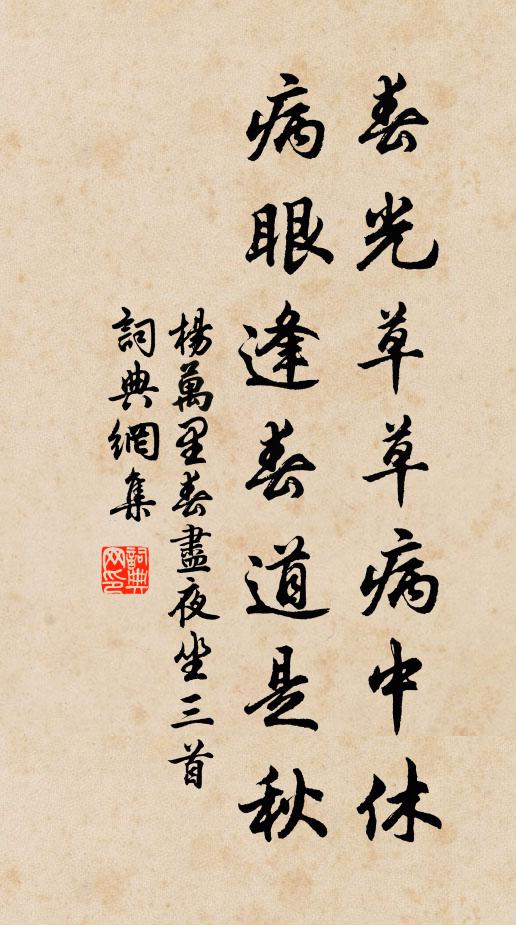 春光草草病中休
病眼逢春道是秋
楊萬里春盡夜坐三首
詞典網集
詞典網印